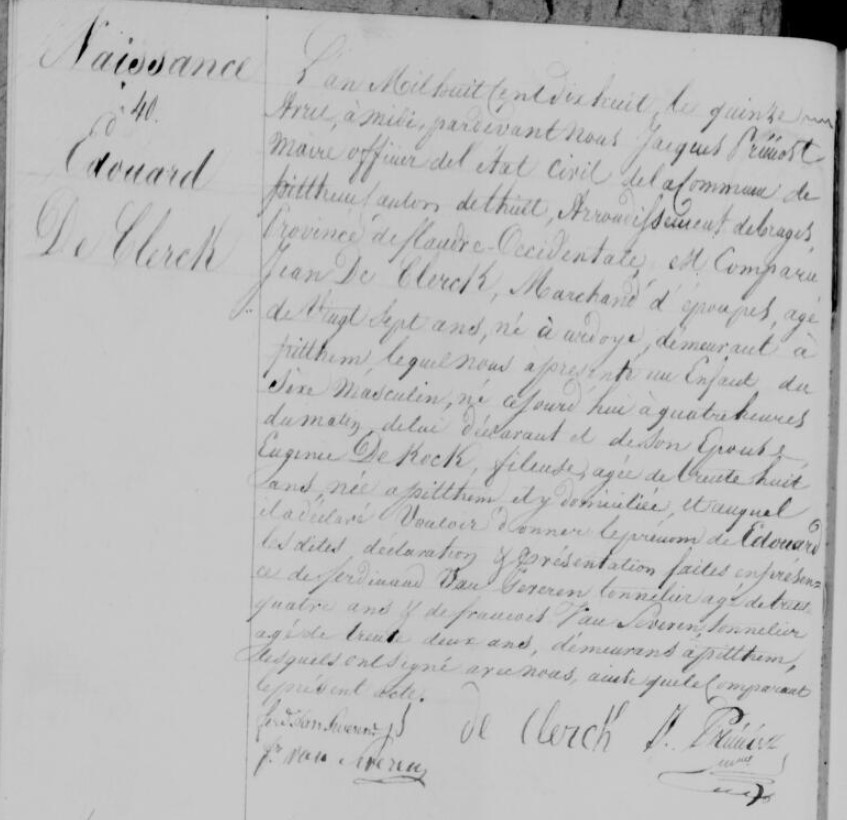 Naissance
40.
Edouard
De Clerck
L'an Mil huit Cent dix huit, le quinze
Avril, à midi, pardevant Nous Jacques
Maire officier del'état Civil dela Commune de
pitthem, Canton dethielt, Arrondissement debruges,
Province deflandre-Occidentale, est Comparu
Jean De Clerck, Marchand d'étoupes, agé
de Vingt Sept ans, né à ardoye, démeurant à
pitthem, lequel nous a présenté un Enfant du
Sexe Masculin, né cejourd'hui à quatre heures
du matin, delui déclarant et de Son Epouse,
Eugenie De Kock, fileuse, agée de trente huit
ans, née a pitthem et y domiciliée, et auquel
il a déclaré Vouloir donner leprénom de Edouard
les dites déclaration & présentation faites en présen=
ce de ferdinand Van Severen tonnelier agé de trente
quatre ans & de francois Van Severen, tonnelier
agé de trente deux ans, démeurans à pitthem,
lesquels ont Signé avec nous, ainsi que le Comparant
leprésent acte.
ferd. Van Severen
de Clerck
fr. van Severen